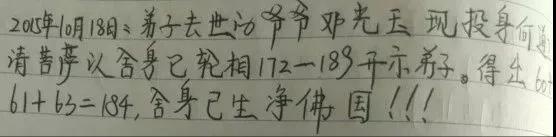 2015年10月18日：弟子去世的爷爷邓光玉 现投身何道
请菩萨以舍身已轮相172—189开示弟子。得出60+
61+63=184，舍身已生净佛国！！！